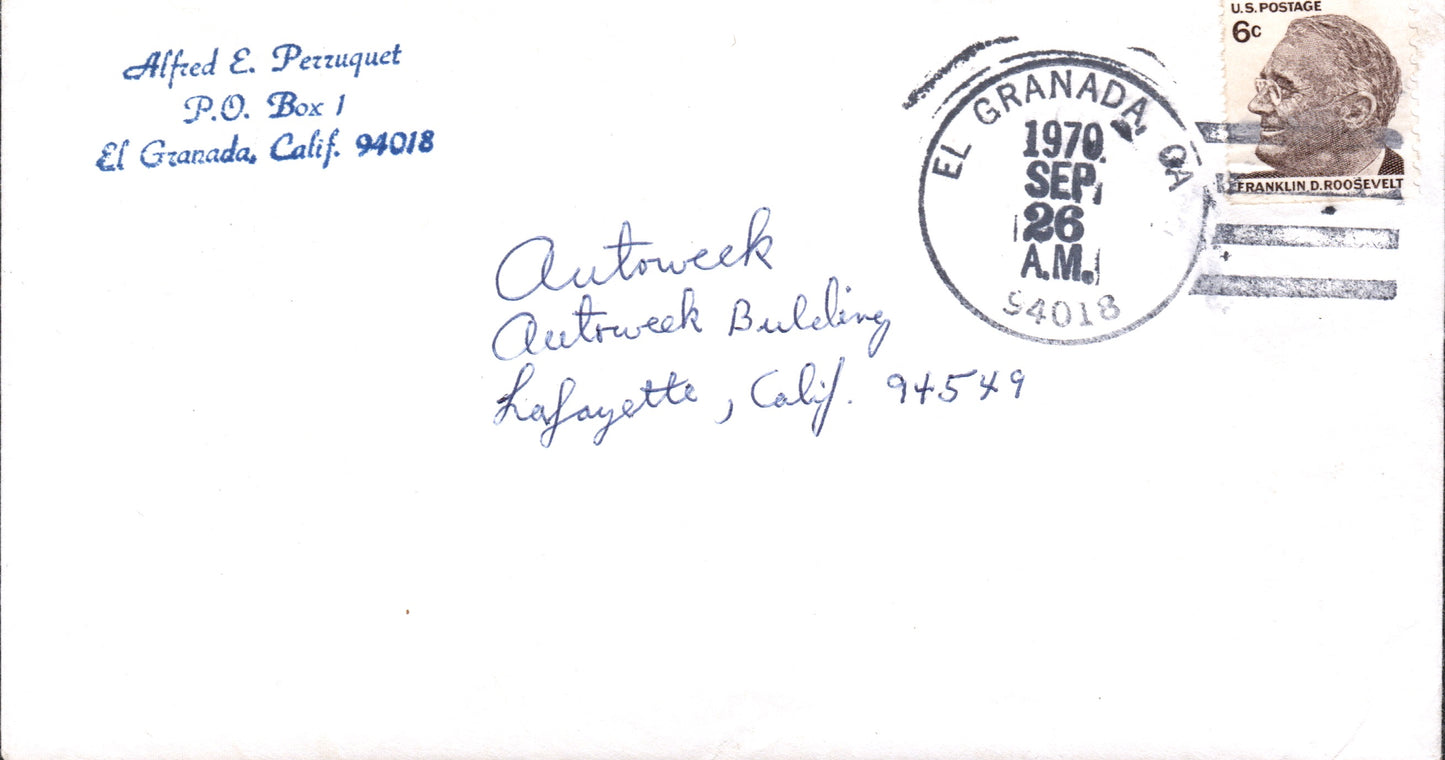 Alfred E. Perruquet
P.O. Box 1
El Granada, Calif. 94018
U.S. POSTAGE
6c
FRANKLIN D. ROOSEVELT
EL GRANADA, CA
1970
SEP
26
A.M.
94018
Autoweek
Autoweek Building
Lafayette, Calif. 94549